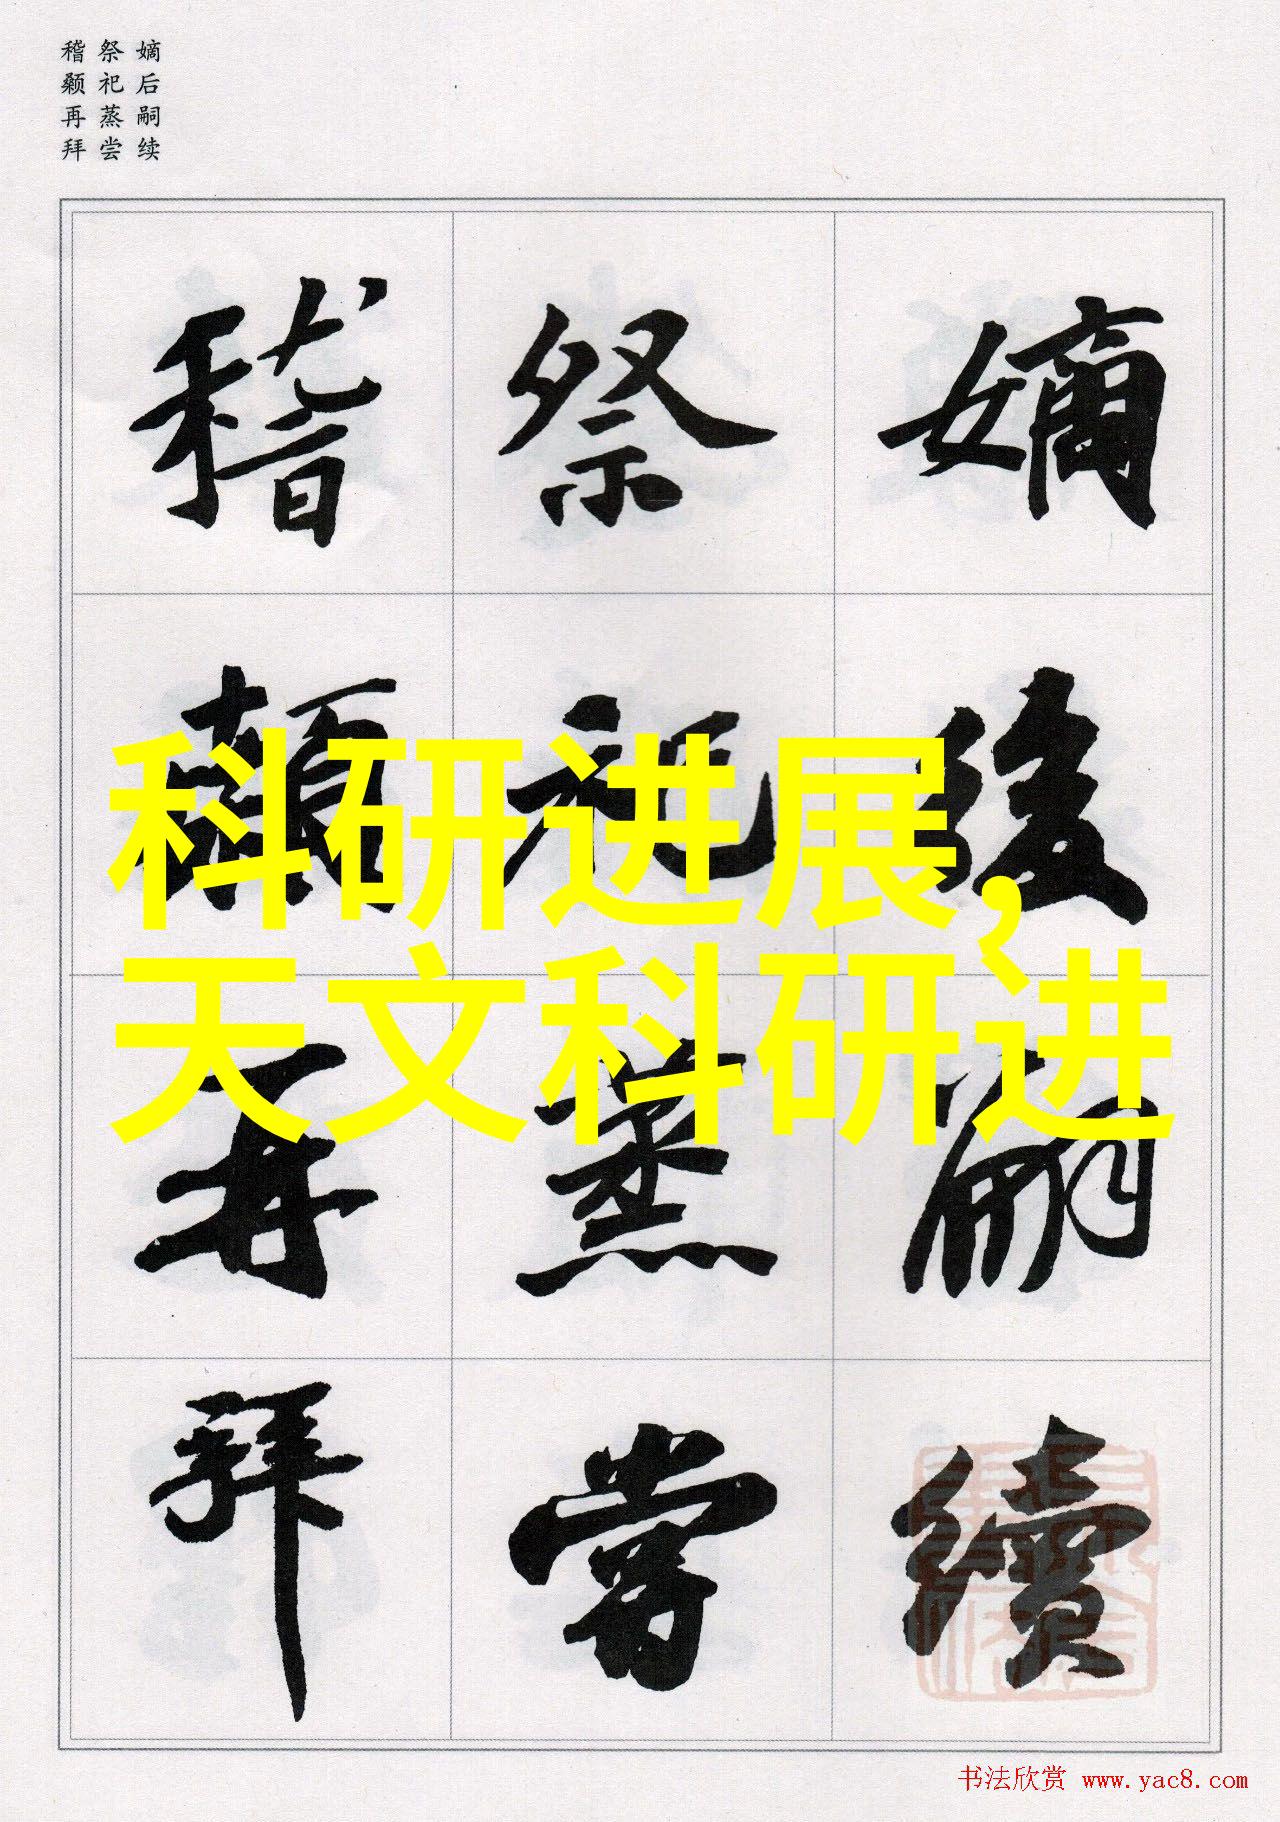 嫡后嗣续
祭祀蒸尝
稽颡再拜
嫡後嗣續
祭祀蒸嘗
稽顙再拜
科研进展,
天文科研进
书法欣赏 www.yac8.com